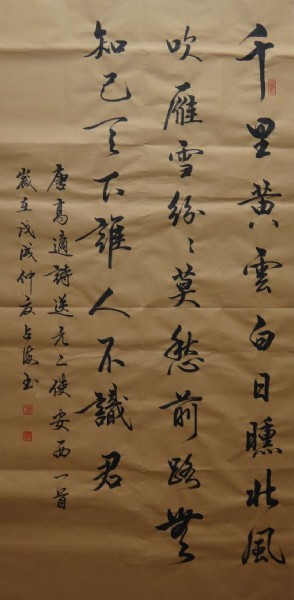 千里黄雲白日曛北風
吹雁雪紛〻莫愁前路無
知己天下誰人不識君
唐高適詩送元二使安西一首
歲在戊戌仲夏占海书